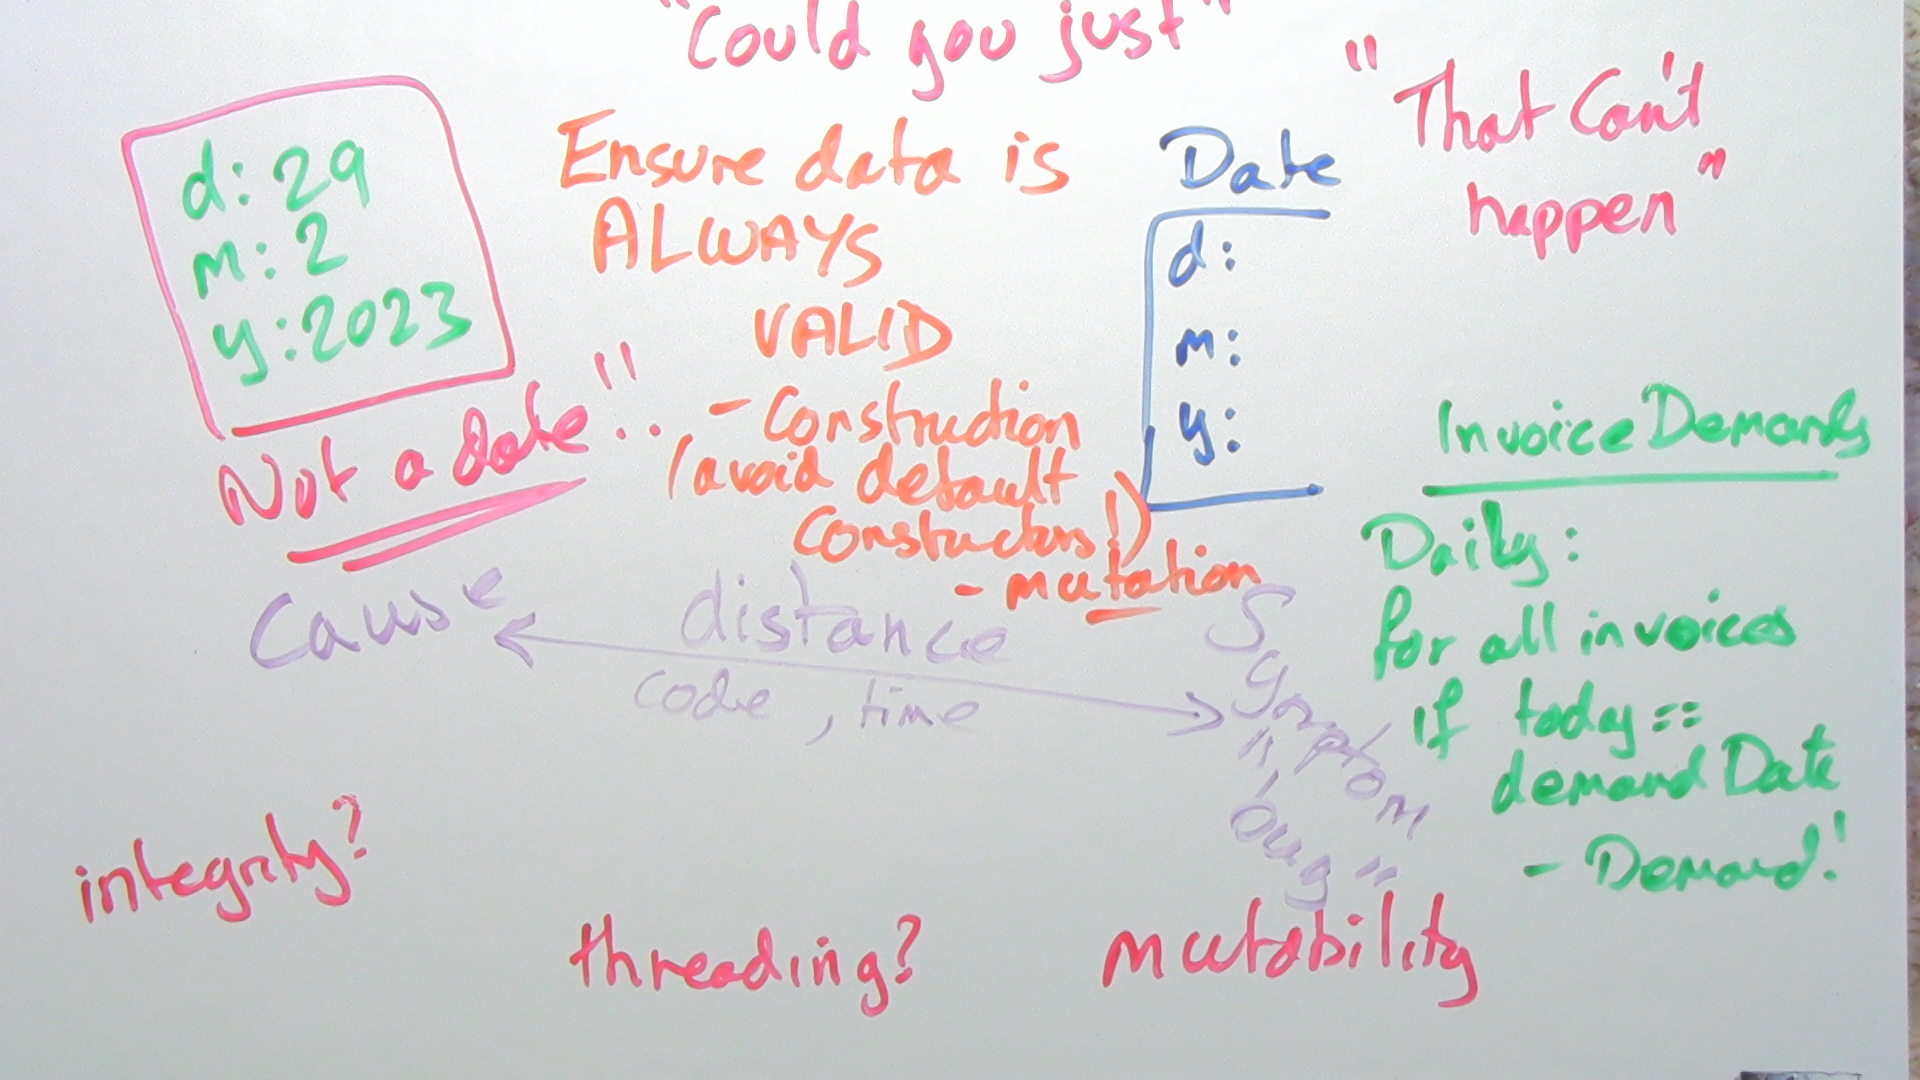 "Could you just"
"That Can't
happen"
d: 29
m: 2
y: 2023
Not a date"!!
Ensure data is
ALWAYS
VALID
- Construction
(avoid default
constructors!)
- mutation
Date
d:
m:
y:
InvoiceDemands
Daily:
for all invoices
if today ==
demandDate
- Demand!
Cause
distance
code, time
Symptom
"bug"
integrity?
threading?
mutability